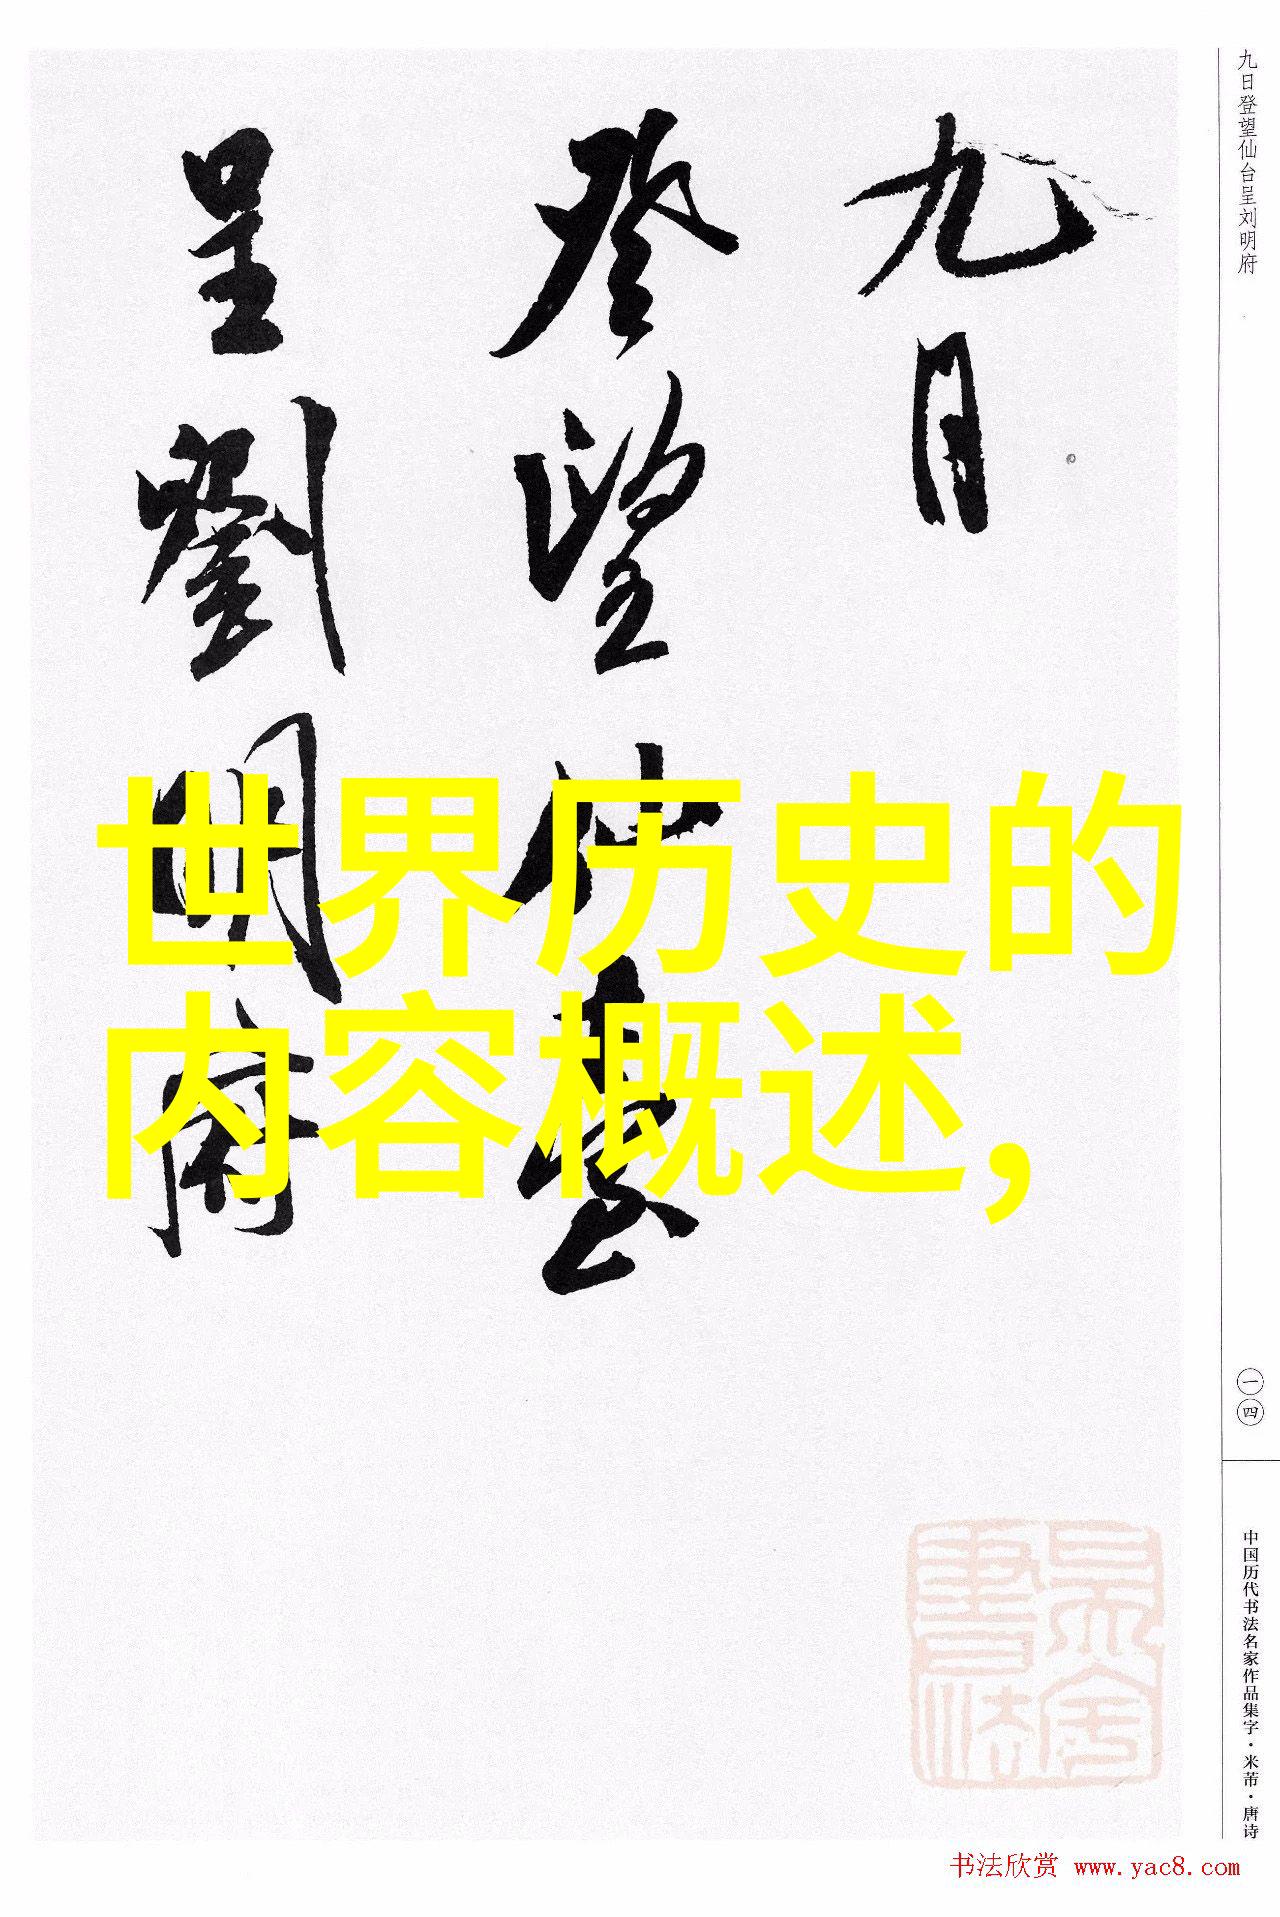 九日
登望仙臺
呈劉明府
世界历史的
内容概述,
九日登望仙台呈刘明府
一四
中国历代书法名家作品集字·米芾·唐诗
书法欣赏 www.yac8.com